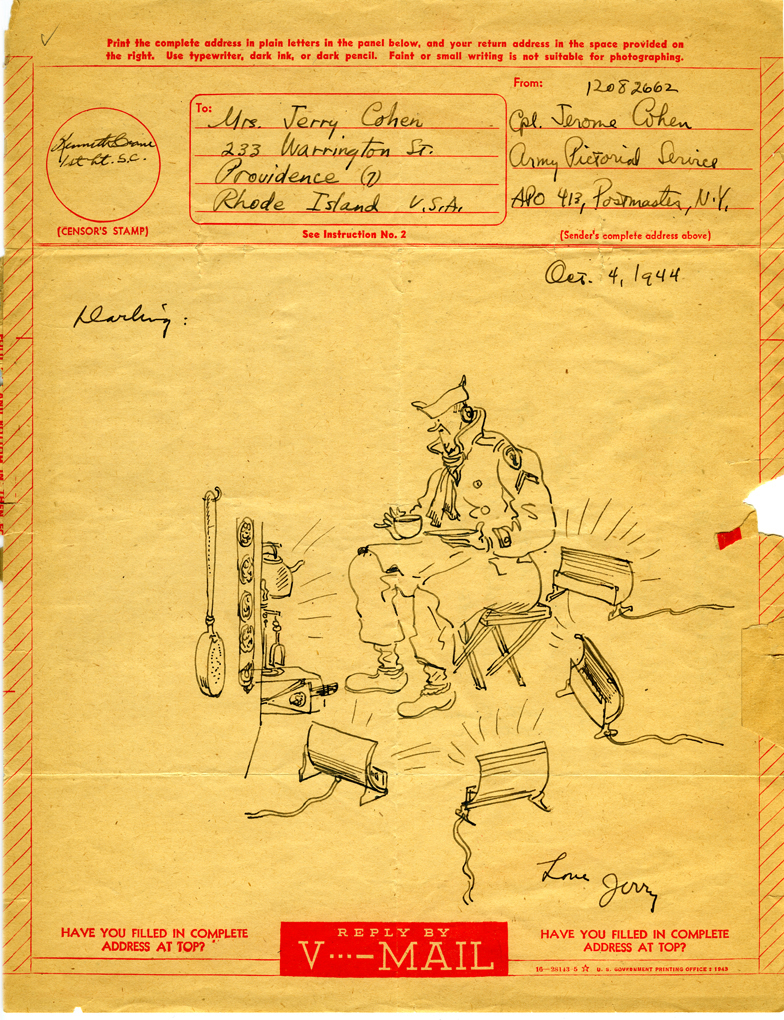 Print the complete address in plain letters in the panel below, and your return address in the space provided on
the right. Use typewriter, dark ink, or dark pencil. Faint or small writing is not suitable for photographing.
To:
Mrs. Jerry Cohen
233 Warrington St.
Providence (7)
Rhode Island U.S.A.
From:
12082662
Cpl. Jerome Cohen
Army Pictorial Service
APO 413, Postmaster, N.Y.
Kenneth
1st Lt. S.C.
(CENSOR'S STAMP)
See Instruction No. 2
(Sender's complete address above)
Oct. 4, 1944
Darling:
Love Jerry
HAVE YOU FILLED IN COMPLETE
ADDRESS AT TOP?
REPLY BY
V···—MAIL
HAVE YOU FILLED IN COMPLETE
ADDRESS AT TOP?
16—28143-5 ☆ U. S. GOVERNMENT PRINTING OFFICE : 1943